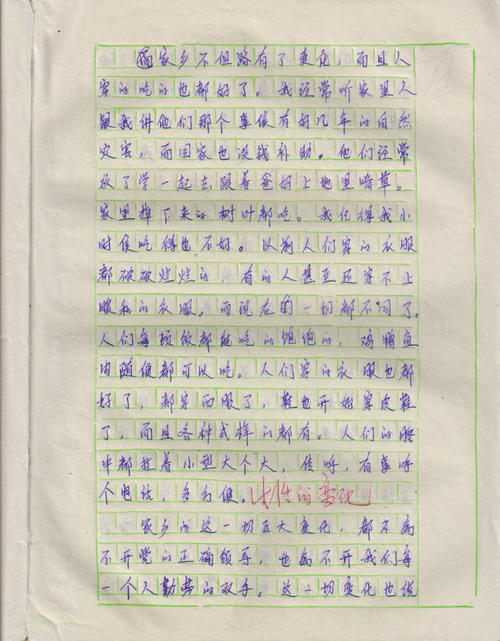 家乡不但路有了变化,而且人
穿的吃的也都好了。我经常听家里人
跟我讲他们那个事候有好几年的自然
灾害,而国家也没钱补助。他们经常
放了学一起去跟着爸妈上地里 草。
家里掉下来的树叶都吃。我记得我小
时侯吃得也不好。以前人们穿的衣服
都破破烂烂的,有的人甚至还穿不上
暖和的衣服。而现在的一切都不同了。
人们每顿饭都能吃的饱饱的,鸡鸭鱼
肉随便都可以吃。人们穿的衣服也都
好了,都穿西服了,鞋也开始穿皮鞋
了,而且各种式样的都有。人们的腰
中都挂着小型大个大,传呼,有事呼
个电话,多方便。 的变化
家乡的这一切巨大变化,都离
不开党的正确领导,也离不开我们每
一个人勤劳的双手。这一切变化也说